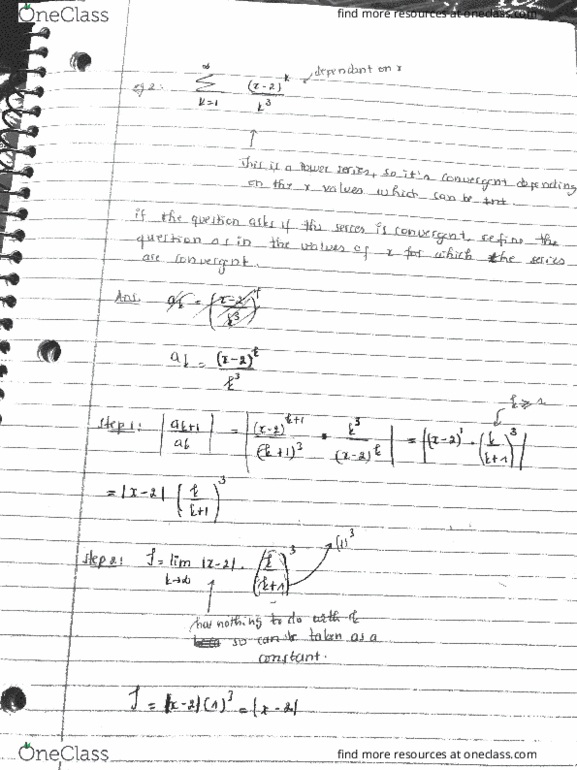 OneClass
find more resources at oneclass.com
eg 2: ∞ Σ k=1 (x-2)^k / k^3 dependant on x
This is a Power series, so it's convergent depending
on the x values which can be
if the question asks if this series is convergent, refine the
question as in the values of x for which the series
are convergent.
Ans: a_k = ((x-2)/k^3)^k
a_k = (x-2)^k / k^3
k ≥ 1
Step 1: |a_{k+1} / a_k| = |(x-2)^{k+1} / (k+1)^3 • k^3 / (x-2)^k| = |(x-2)^1 • (k / k+1)^3|
= |x-2| (k / k+1)^3
Step 2: J = lim k→∞ |x-2| • (k / k+1)^3 (1)^3
has nothing to do with k
so can be taken as a
constant.
J = |x-2| (1)^3 = |x-2|
OneClass
find more resources at oneclass.com